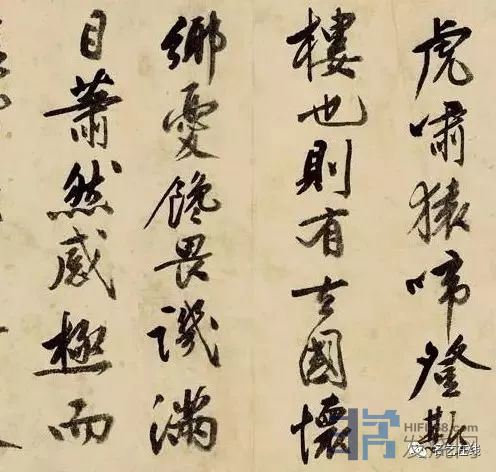 虎嘯猿啼登斯
樓也則有去國懷
鄉憂讒畏譏滿
目蕭然感極而